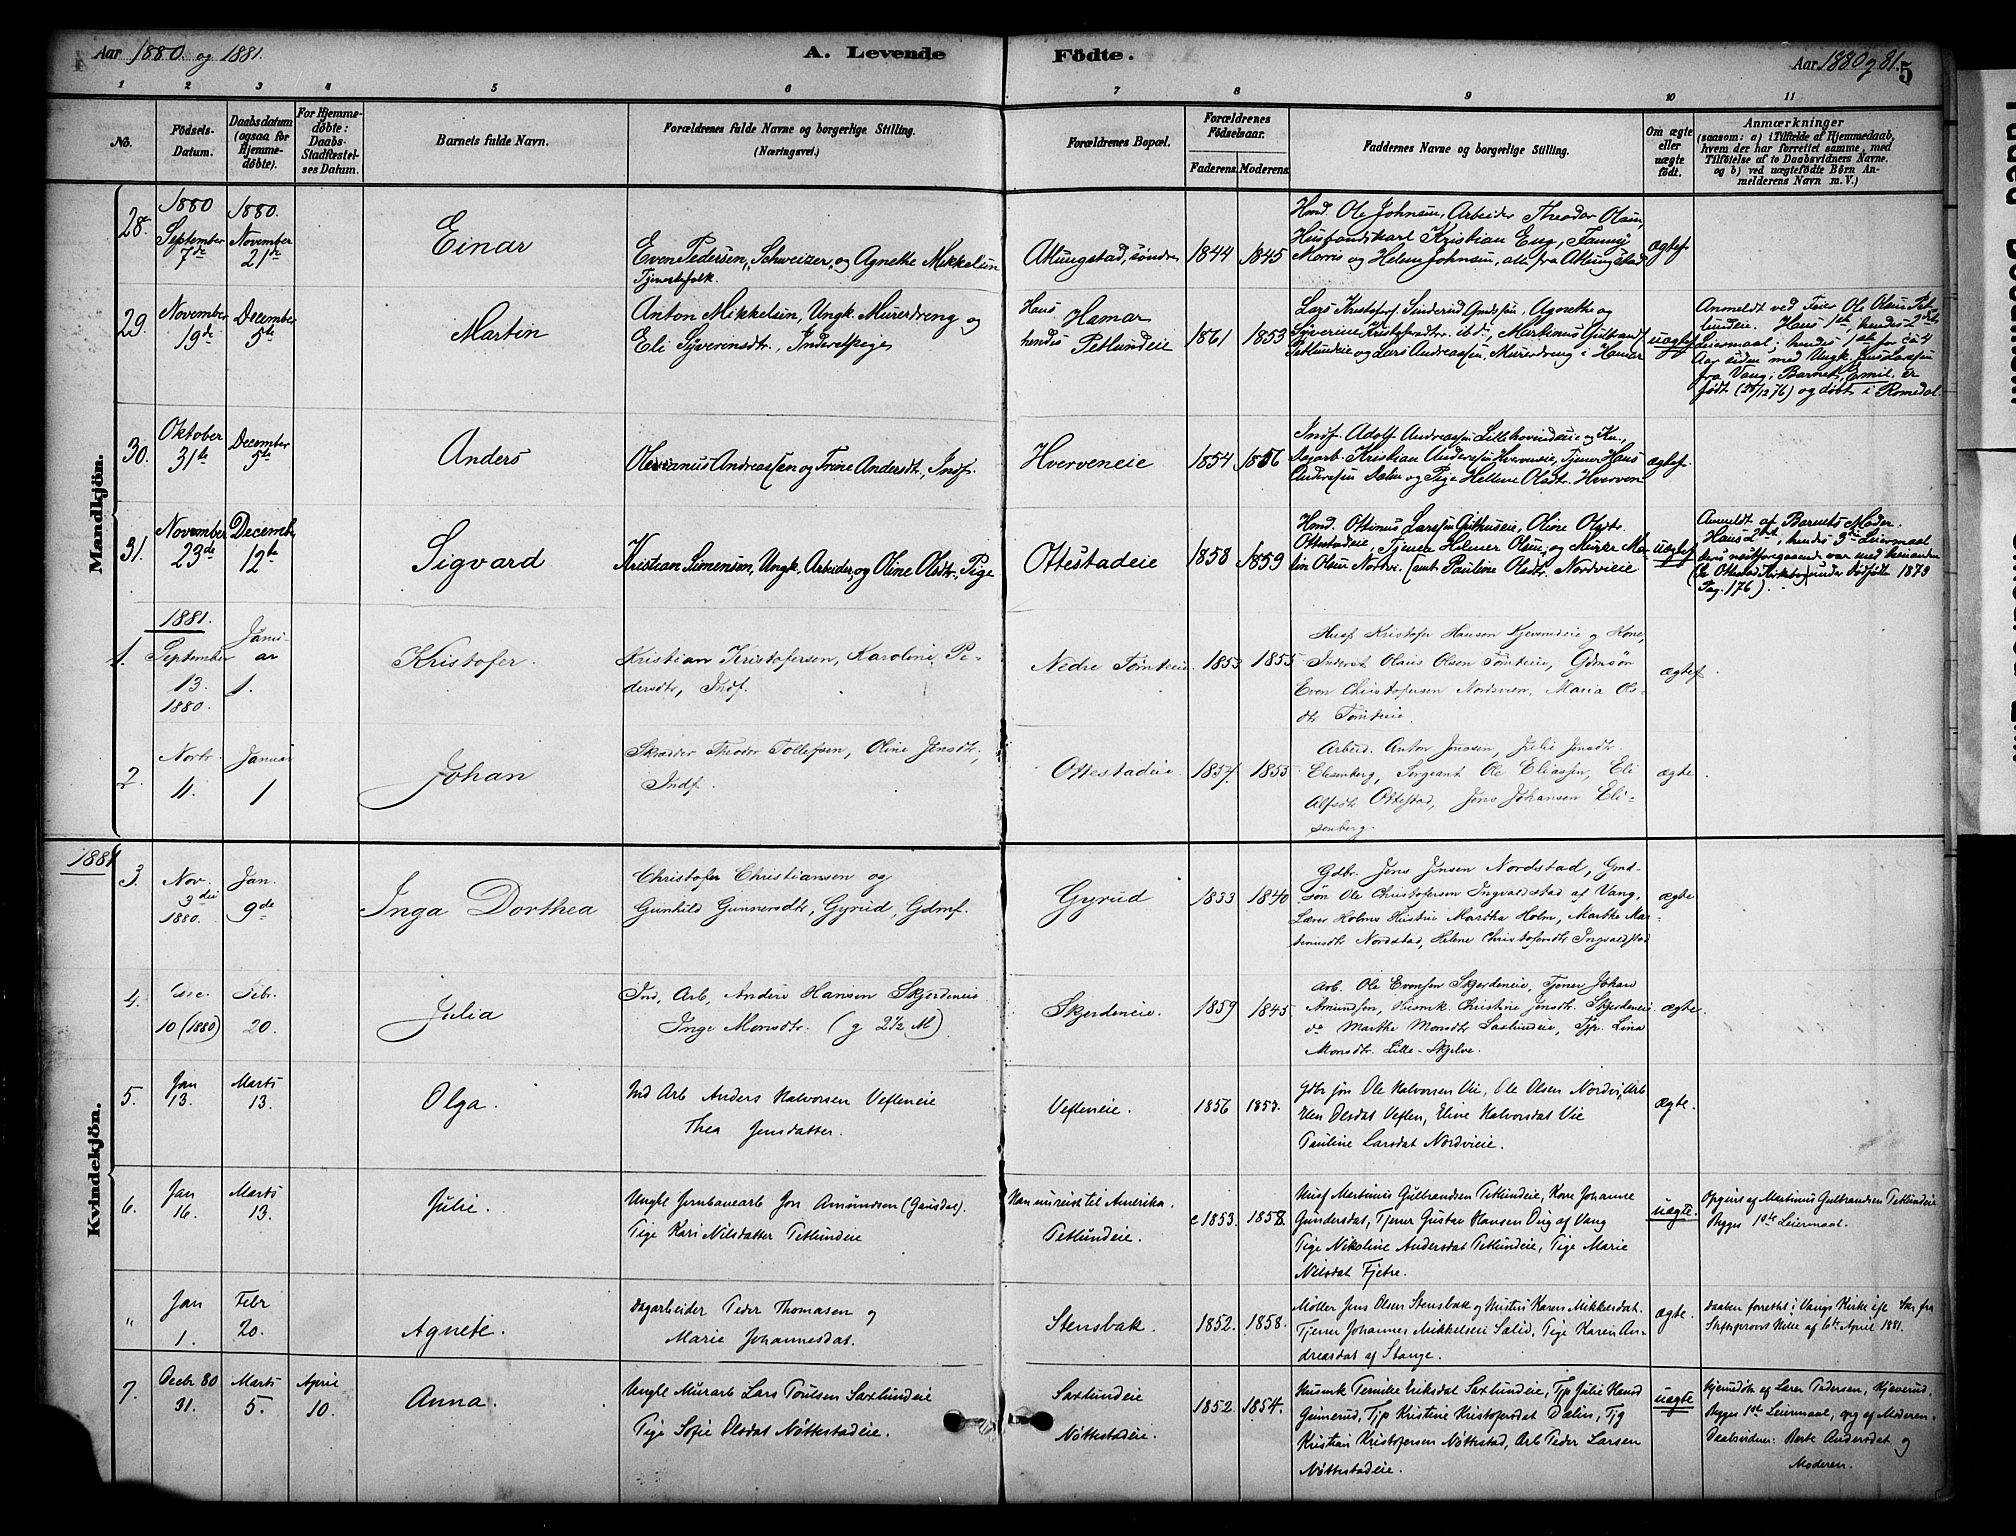 Aar 1880 og 1881. A. Levende Födte. Aar 1880 og 81. 5
1 2 3 4 5 6 7 8 9 10 11
No.
Födsels-Datum.
Daabsdatum (ogsaa for Hjemmedöbte).
For Hjemmedöbte: Daabs-Stadfæstelses Datum.
Barnets fulde Navn.
Forældrenes fulde Navne og borgerlige Stilling.
(Næringsvei.)
Forældrenes Bopæl.
Forældrenes Födselsaar.
Faderens. Moderens.
Faddernes Navne og borgerlige Stilling.
Om ægte eller uægte födt.
Anmærkninger
(saasom: a) i Tilfælde af Hjemmedaab,
hvem der har forrettet samme, med
Tilföielse af to Daabsvidners Navne,
og b) ved uægtefödte Börn Anmelderens Navn m. V.)
Mandkjön.
28. 1880 September 7de
1880. November 21de
Einar
Even Pedersen, Schweizer, og Agnethe Mikkelsen
Tjenestefolk.
Atlungstad, søndre
1844 1845
Hmd. Ole Johnsen, Arbeider Theodor Olsen,
Husbandskarl Kristian Eng, Fanny
Morris og Helene Johnsen, alle fra Atlungstad
ægtef.
29. November 19de
December 5te
Martin
Anton Mikkelsen, Ungk. Murerdreng og
Eli Syverensdtr., Inderstpige
Hans Hamar
hendes Petlundeie
1861 1853
Lars Kristofersen, Agnethe og
Syverine Kristofersdtr. ibd;, Martinus Gulbrandsen
Petlundeie og Lars Andreassen, Murerdreng i Hamar
uægtef
Anmeldt ved Ole Olsen Petlundeie. Hans 1ste, hendes 2det
Leiermaal; hendes 1ste for ca 4
Aar siden med Ungk. Jens Larssen
fra Vang; Barnet, Emil, er
født (28/12 76) og døbt i Romedal.
30. Oktober 31te
December 5te
Anders
Olevianus Andreassen og Trine Andersdtr., Indf.
Hverveneie
1854 1856
Indf. Adolf Andreassen Lillehovindeie og Kn.,
Dagarb. Kristian Anderssen Hverveneie, Tjener Hans
Anderssen Dalen og Pige Hellene Olsdtr. Hverven
ægtef.
31. November 23de
December 12te
Sigvard
Kristian Simensen, Ungk. Arbeider, og Oline Olsdtr., Pige
Ottestadeie
1858 1859
Hmd. Ottinus Larssen Githuseie, Oline Olsdtr.
Ottestadeie, Tjener Helmer Olsen og Murer Martin Olsen Nordvi. samt Pauline Olsdtr. Nordvieie
uægtef
Anmeldt af Barnets Moder.
Hans 2det, hendes 3die Leiermaal
deres næstforegaaende var med hinanden
(Se Ottestad Kirkebog under Dødfødte 1879
Pag. 176).
1881.
1. September 13. 1880.
Januar 1.
Kristofer.
Kristian Kristofersen, Karoline Pedersdtr, Indf.
Nedre Tomteeie.
1853 1855
Husf Kristofer Hansen Kjevemeie og Kone,
Inderst Olaus Olsen Tomteeie, Gdmsøn
Even Christofersen Nordvien, Maria Olsdtr Tomteeie.
ægtef.
2. Novbr 11.
Januar 1
Johan
Skrædder Theodor Tollefsen, Oline Jensdtr.,
Indf.
Ottestadeie.
1857. 1855
Arbeid. Anton Jenssen, Julie Jensdtr.
Elisenberg, Sergeant Ole Eliassen, Eli
Alfsdtr Ottestad, Jens Johansen Elisenberg.
ægte
1881
Kvindekjön.
3. Nov. 3die 1880.
Jan. 9de
Inga Dorthea
Christofer Christiansen og
Gunhild Gunnersdtr, Gyrud, Gdmf.
Gyrud
1833 1840
Gdbr. Jens Jensen Nordstad, Gmdsøn Ole Christofersen Ingvaldstad af Vang,
Lærer Holms Hustrue Martha Holm, Marthe Martinusdtr Nordstad, Helene Christofersdtr Ingvaldstad
ægte
4. Dec. 10 (1880)
Febr. 20.
Julia
Ind, Arb, Anders Hansen Skjerdeneie.
Inge Monsdtr. (g 2½ M)
Skjerdeneie.
1859 1845
Arb. Ole Evensen Skjerdeneie, Tjener Johan
Amundsen, Husmk Christine Jensdtr. Skjerdeneie
do Marthe Monsdtr Saxlundeie, Tjp. Lina
Monsdtr. Lille-Skjelve.
ægte.
5. Jan 13.
Marts 13.
Olga.
Ind Arb Anders Halvorsen Vefleneie
Thea Jensdatter.
Vefleneie.
1856 1853.
Gdbr søn Ole Halvorsen Vie, Ole Olsen Nordvi, Arb
Elen Olsdat Veflen, Eline Halvorsdat Vie
Pauline Larsdat Nordvieie.
ægte.
6. Jan 16.
Marts 13.
Julie.
Ungkl Jernbanearb Jon Amundsen (Gausdal)
Pige Kari Nilsdatter Petlundeie
Han udreist til Amerika.
Petlundeie.
c 1853. 1858.
Husf Martinus Gulbrandsen Petlundeie, Kone Johanne
Gundersdat, Tjener Gustav Hansen Dug af Vang
Pige Nikoline Andersdat Petlundeie, Pige Marie
Nilsdat Fjetre.
uægte.
Opgives af Martinus Gulbrandsen Petlundeie
Begges 1ste Leiermaal.
" Jan 1.
Febr 20.
Agnete.
Dagarbeider Peder Thomasen og
Marie Johannesdat.
Stensbak.
1852. 1858.
Møller Jens Olsen Stensbak og Hustru Karen Mikkelsdat.
Tjener Johannes Mikkelsen Salid, Pige Karen Andreasdat af Stange.
ægte.
Daaben forrettet i Vangs Kirke af 6te April 1881.
7. Decbr 80 31.
Marts 5.
April 10.
Anna.
Ungkl Murarb Lars Poulsen Saxlundeie
Pige Sofie Olsdat Nøttestadeie.
Saxlundeie
Nøttestadeie.
1852. 1854.
Husmk Pernike Eriksdat Saxlundeie, Tjp Julie Hansd
Gunnerud, Tjp Kristine Kristofersdat Dalin, Tjg
Kristian Kristofersen Nøttestad, Arb Peder Larsen
Nøttestadeie.
uægte
Hjemdøbt af Lærer Pedersen, Kjeverud.
Begges 1ste Leiermaal, opg af Moderen.
Daabsvidner: Berte Andersdat og
Moderen.